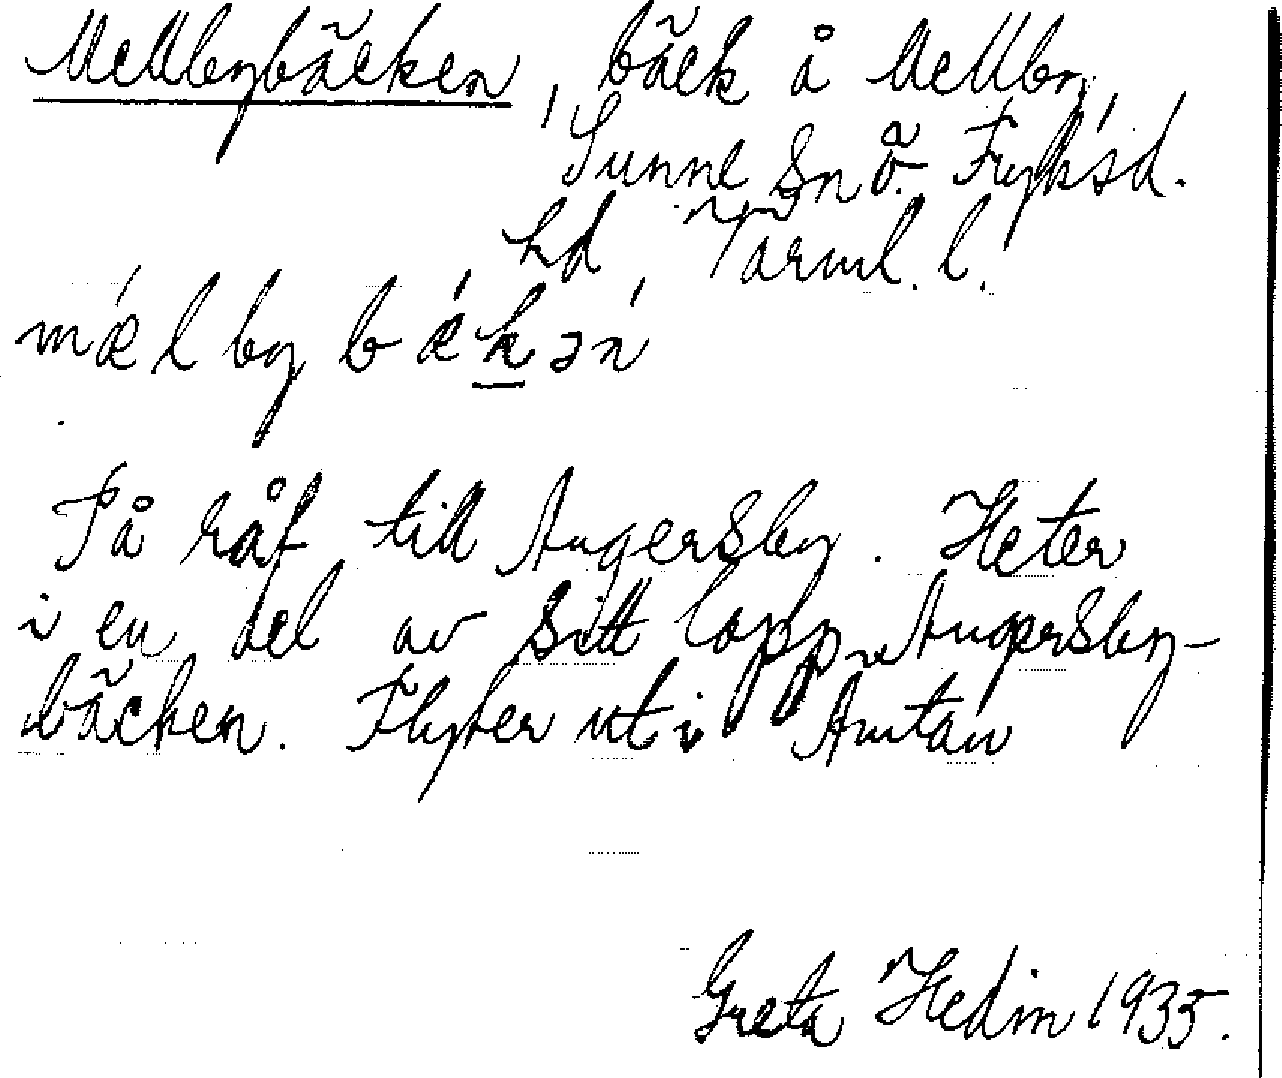 Mellbybäcken, bäck å Mellby,
Sunne Sn Ö. Fryksd.
hd, Värml. l.
mǽlbybǽkəń
På råf till Angersby. Heter
i en del av sitt lopp Angersby-
bäcken. Flyter ut i Amtan
Greta Hedin 1935.